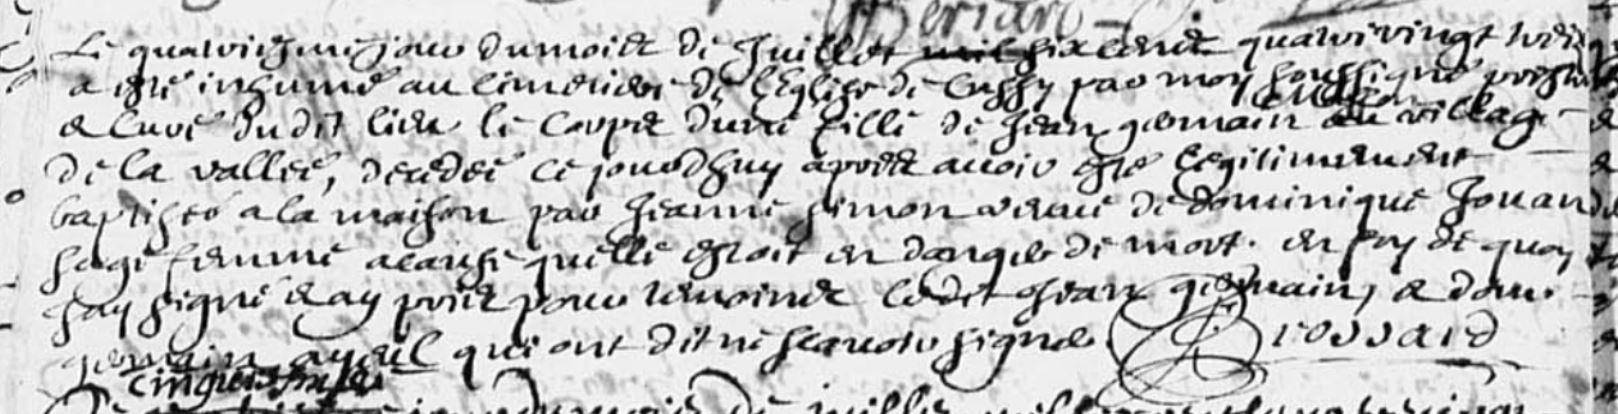 Le quatriesme jour du mois de Juillet mil six cent quatrevingt trois
a esté inhumé au cimetiere de l'Eglise de Cussy par moy soussigné prestre
& curé dudit lieu le corps dune fille de Jean germain du village
de la vallee, decedee ce jourdhuy apres avoir esté legitimement
baptisée a la maison par Jeanne simon veuve de dominique Jouan
sage femme a cause quelle estoit en danger de mort. en foy de quoy
jay signé & ay pris pour temoins ledit Jean germain, & dom.
germain ayeul qui ont dit ne scavoir signer Rossard